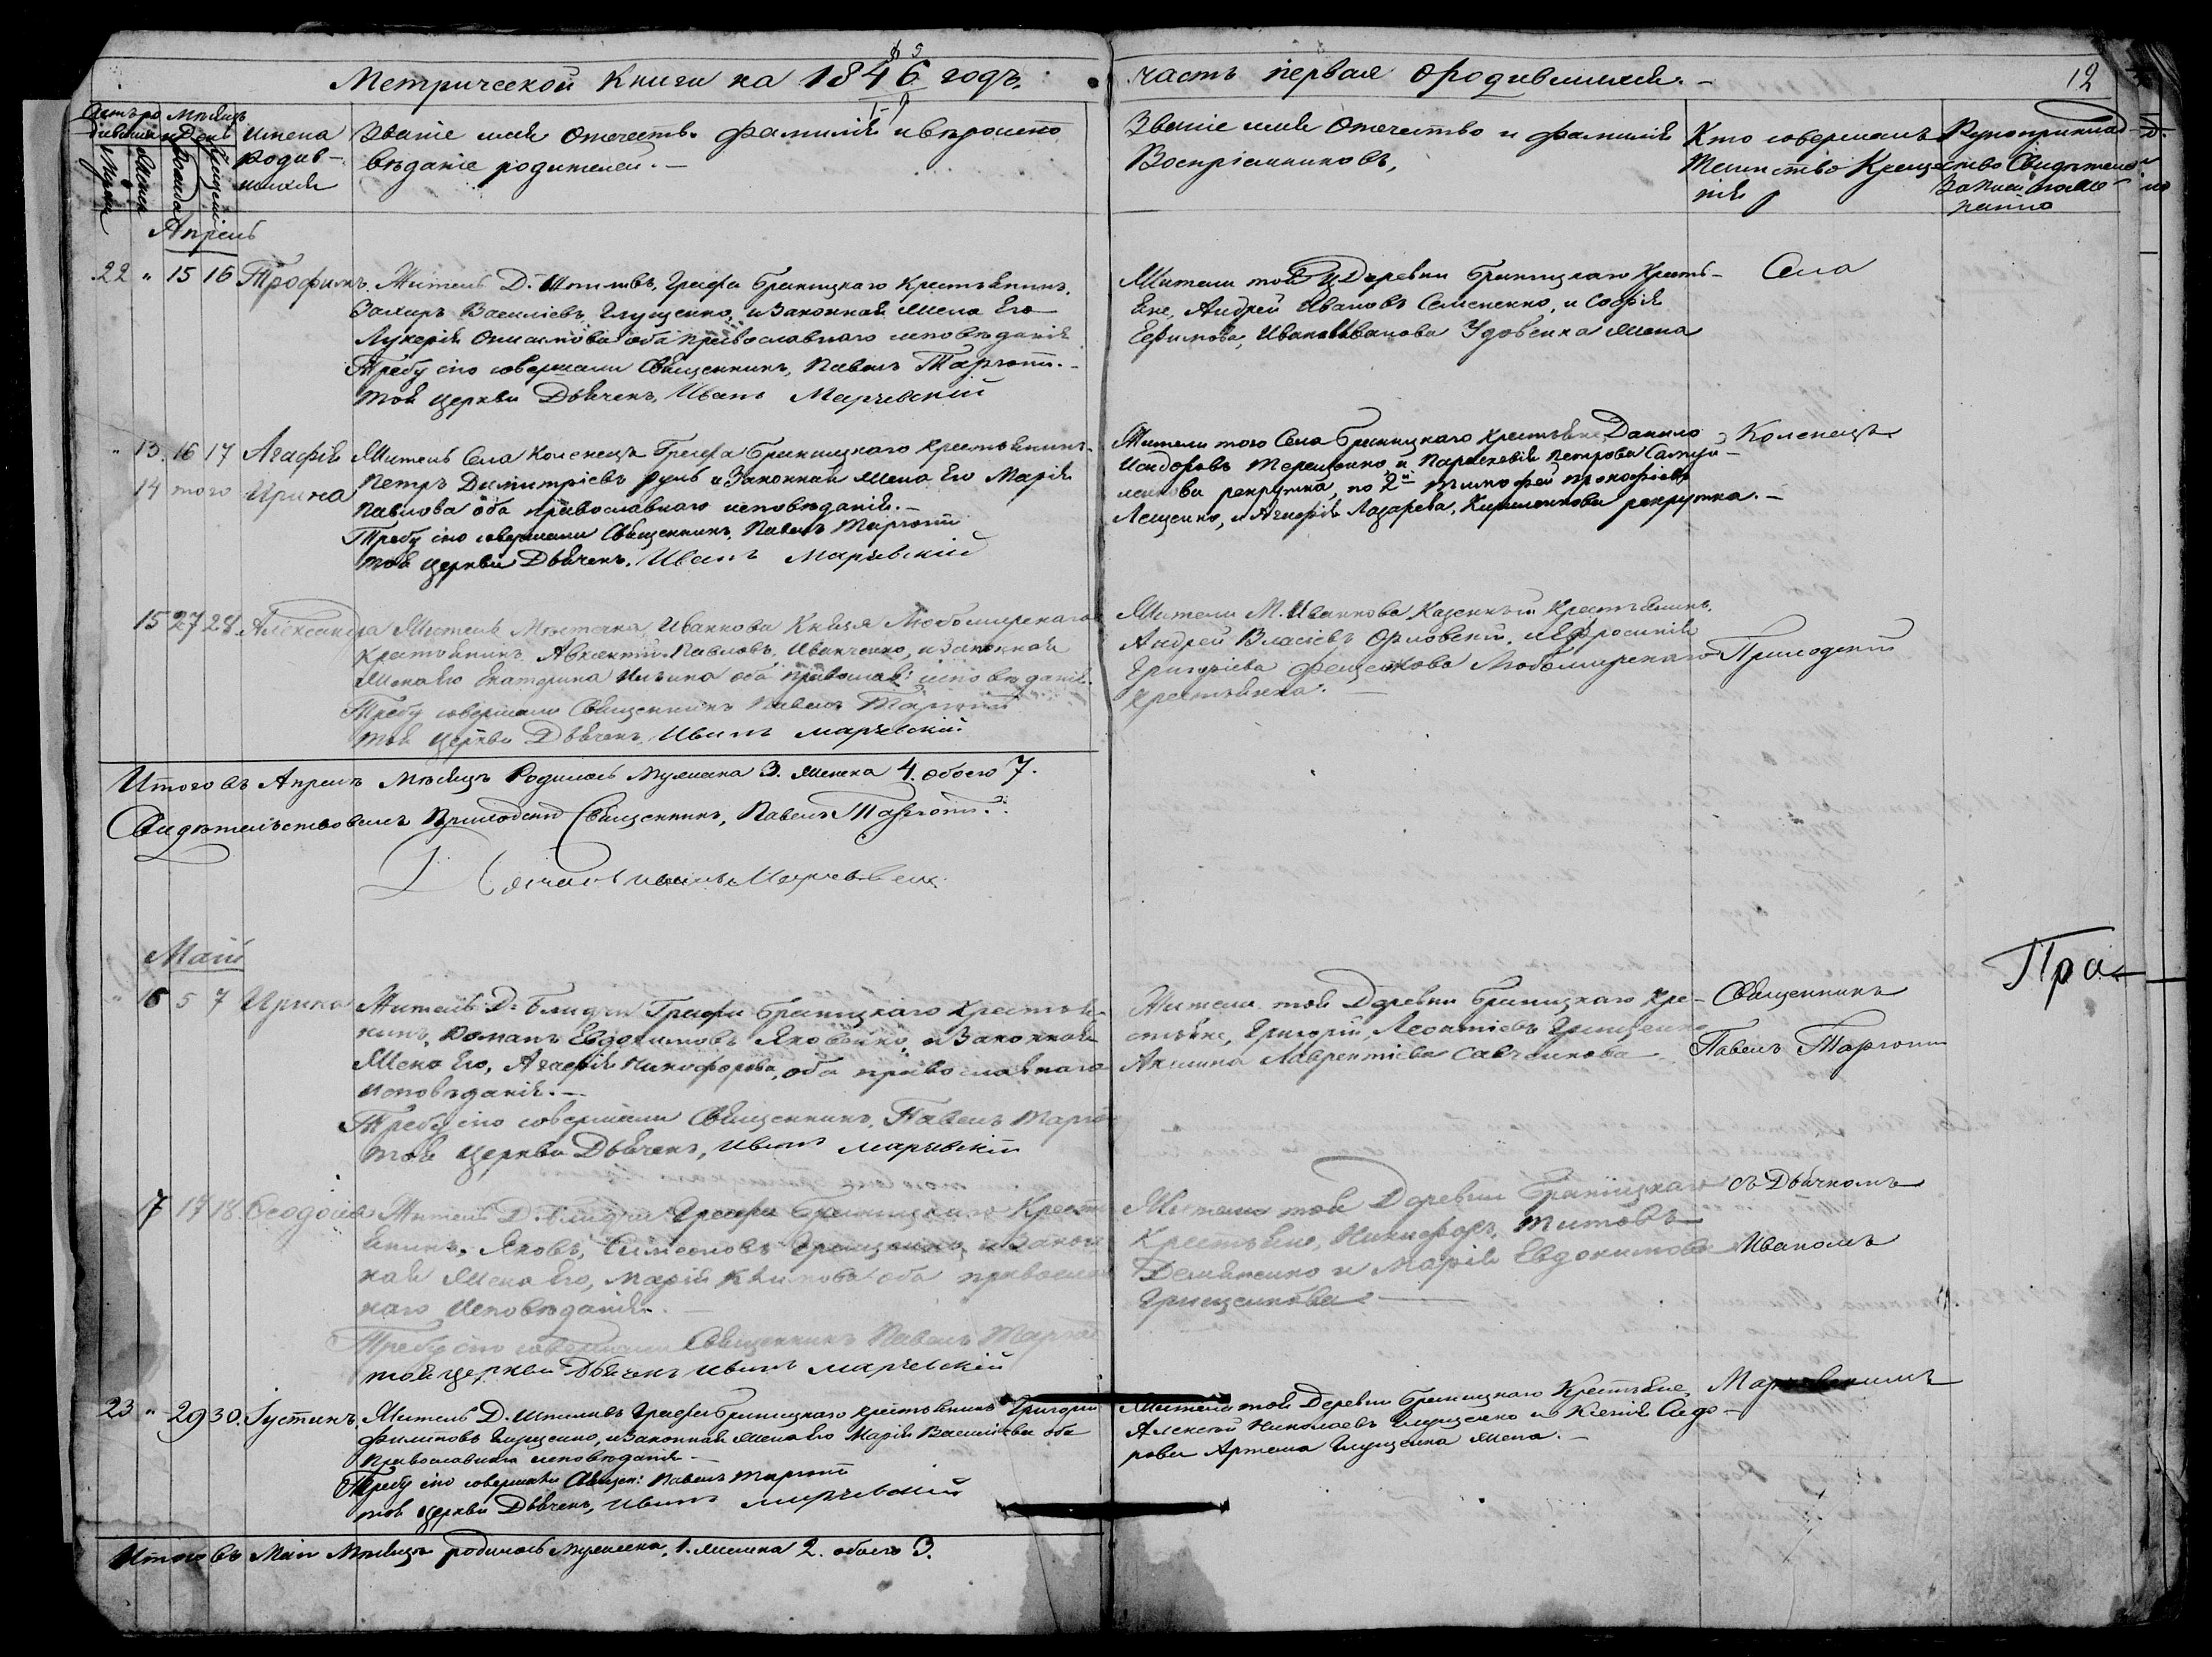 Метрической Книги на 1846 годъ.
часть первая о родившихся.
12
Счетъ родившихся
Мѣсяцъ и День
Мужеска
Женска
Рожденія
Крещенія
Имена родив-
шихся
Званіе имя отечество фамилія и вѣроиспо
вѣданіе родителей. —
Званіе имя Отечество и фамилія
Воспріемниковъ,
Кто совершалъ
Таинство Креще
нія
Рукоприклад-
ство Свидѣтелей
записи по же-
ланію
Апрель
22 " 15 16 Трофимъ. Житель Д. Графа Браницкаго Крестьянинъ,
Захаръ Василіевъ, Глущенко, и Законная жена Его
Лукерія оба православнаго исповѣданія
Требу сію совершали Священникъ, Павелъ
той церкви Дьячекъ, Иванъ Марчевскій
Жители той Деревни Браницкаго Кресть-
яне, Андрей Ивановъ Семененко, и Софія
Ефимова, Ивана Иванова Удовенка жена
Села
" 13. 16 17 Агафія Житель Села Коленецъ Графа Браницкаго Крестьянинъ
14 того Ирина Петръ Димитріевъ и Законная жена Его Марія
Павлова оба православнаго исповѣданія. —
Требу сію совершали Священникъ, Павелъ
той церкви Дьячекъ, Иванъ Марчевскій
Жители того Села Браницкаго крестьяне Данило
и Параскевія Петрова
рекрутка, по 2й Тимофей Прокофіевъ
Лещенко, и Агафія Лазарева, рекрутка. —
Коленецъ
15 27 28 Александра Житель Мѣстечка Иванкова Князя Любомирскаго
Крестьянинъ Авксентій Павловъ Иванченко, и законная
Жена Его Екатерина оба православ: исповѣданія.
Требу совершали Священникъ Павелъ
той церкви Дьячекъ, Иванъ Марчевскій.
Жители М. Иванкова Казенный Крестьянинъ,
Андрей Власіевъ Орловскій, и Ефросинія
Григоріева Любомирскаго
крестьянка. —
Приходскій
Итого въ Апрелѣ Мѣсяцѣ Родилось Мужеска 3. Женска 4. обоего 7.
Свидѣтельствовалъ Приходскій Священникъ, Павелъ
Дьячокъ Иванъ Марчевскій
Май
" 16 5 7 Ирина Житель Д. Блидчи Графа Браницкаго Крестья-
нинъ, Романъ Евдокимовъ Яковенко, и Законная
Жена Его, Агафія Никифорова, оба православнаго
исповѣданія. —
Требу сію совершали Священникъ, Павелъ
той церкви Дьячекъ, Иванъ Марчевскій
Жители той Деревни Браницкаго Кре-
стьяне, Григорій Леонтіевъ Грищенко
Акилина Лаврентіева Савченкова
Священникъ
Павелъ
Пра
17 17 18. Ѳеодосія Житель Д. Блидчи Графа Браницкаго Кресть
янинъ, Яковъ, Симеоновъ Грищенко и Закон
ная Жена Его, Марія Климова оба православ
наго Исповѣданія. —
Требу сію совершали Священникъ Павелъ
той церкви Дьячекъ Иванъ Марчевскій
Жители той Деревни Браницкаго
Крестьяне, Никифоръ Титовъ
Демьяненко и Марія Евдокимова
Грищенкова
съ Дьячкомъ
Иваномъ
23 " 29 30. Іустинъ. Житель Д. Графа Браницкаго крестьянинъ Григорій
Филиповъ Глущенко, и Законная жена Его Марія Василіева оба
Православнаго исповѣданія —
Требу сію совершали Священ: Павелъ
той церкви Дьячекъ, Иванъ Марчевскій
Жители той Деревни Браницкаго Крестьяне,
Алексѣй Николаевъ Глущенко и Ксенія Сидо-
рова Артема Глущенка жена. —
Марчевскимъ
Итого въ Маи Мѣсяцѣ родилось Мужеска, 1. женска 2. обоего 3.